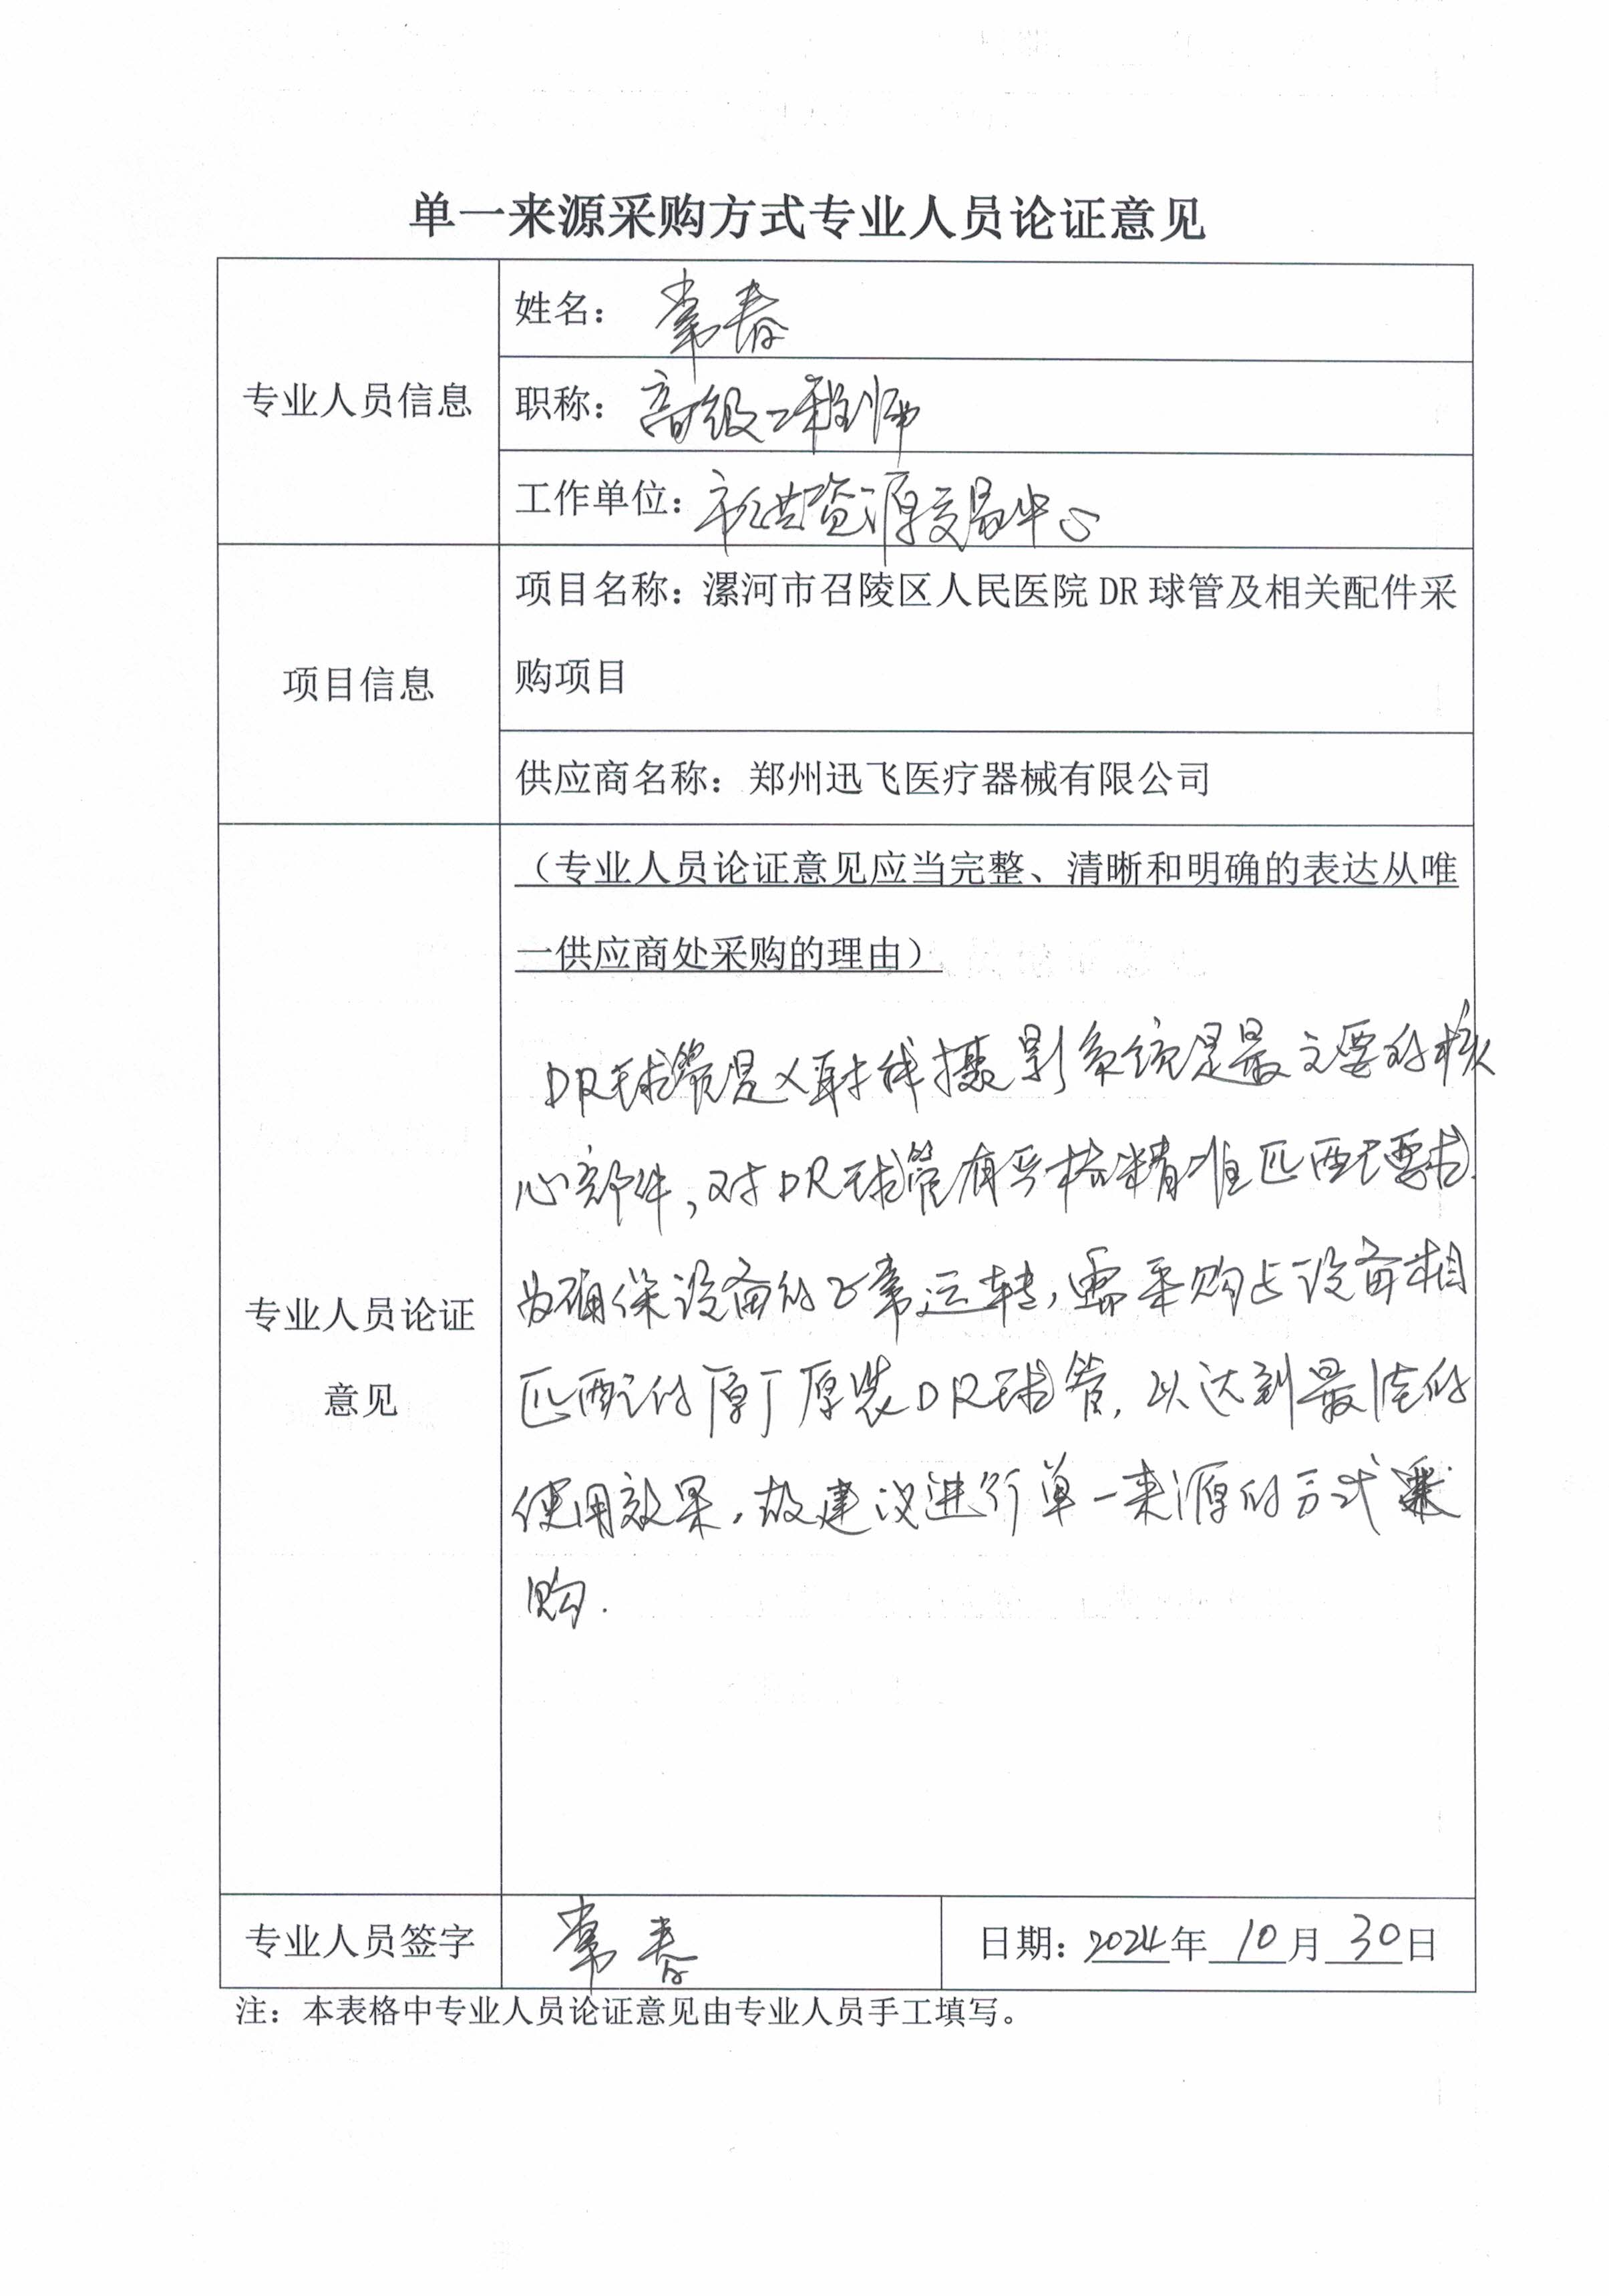 单一来源采购方式专业人员论证意见
专业人员信息
姓名：常春
职称：高级工程师
工作单位：市公共资源交易中心
项目信息
项目名称：漯河市召陵区人民医院 DR 球管及相关配件采
购项目
供应商名称：郑州迅飞医疗器械有限公司
专业人员论证
意见
（专业人员论证意见应当完整、清晰和明确的表达从唯
一供应商处采购的理由）
DR球管是X射线摄影系统是最主要的核
心部件，对DR球管有严格精准匹配要求.
为确保设备的正常运转，需采购与设备相
匹配的原厂原装DR球管，以达到最佳的
使用效果，故建议进行单一来源的方式采
购.
专业人员签字
常春
日期：2024年 10 月 30 日
注：本表格中专业人员论证意见由专业人员手工填写。